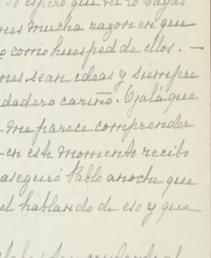 espero que no te vayas
mucha razon en que
como huesped de ellos. —
sean ideas y siempre
dadero cariño. Ojalá que
me parece comprender
en este momento recibo
aseguró Pablo anoche que
el hablando de eso y que